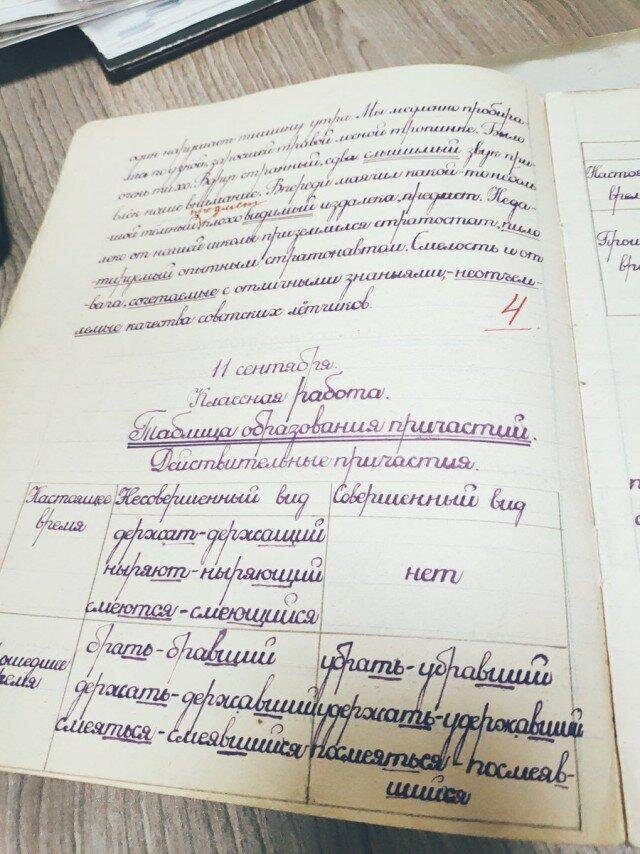 один нарушает тишину утра. Мы медленно пробира-
лись по узкой, заросшей травой лесной тропинке. Было
очень тихо. Вдруг странный, едва слышимый звук при-
влёк наше внимание. Впереди маячил какой-то неболь
шой темный плохо видимый издалека, предмет. Неда-
предмет
леко от нашей школы приземлился стратостат, пило
тируемый опытным стратонавтом. Смелость и от
вага, сочетаемые с отличными знаньями, - неотъем-
лемые качества советских лётчиков.
4
11 сентября.
Классная работа.
Таблица образования причастий.
Действительные причастия.
Настоящее время
Несовершенный вид
Совершенный вид
держат - держащий
ныряют - ныряющий
смеются - смеющийся
нет
ошедшее
ремя
брать - бравший
держать - державший
смеяться - смеявшийся
убрать - убравший
удержать - удержавший
посмеяться - посмеяв-
шийся
Настоя
врем
Прош
вре